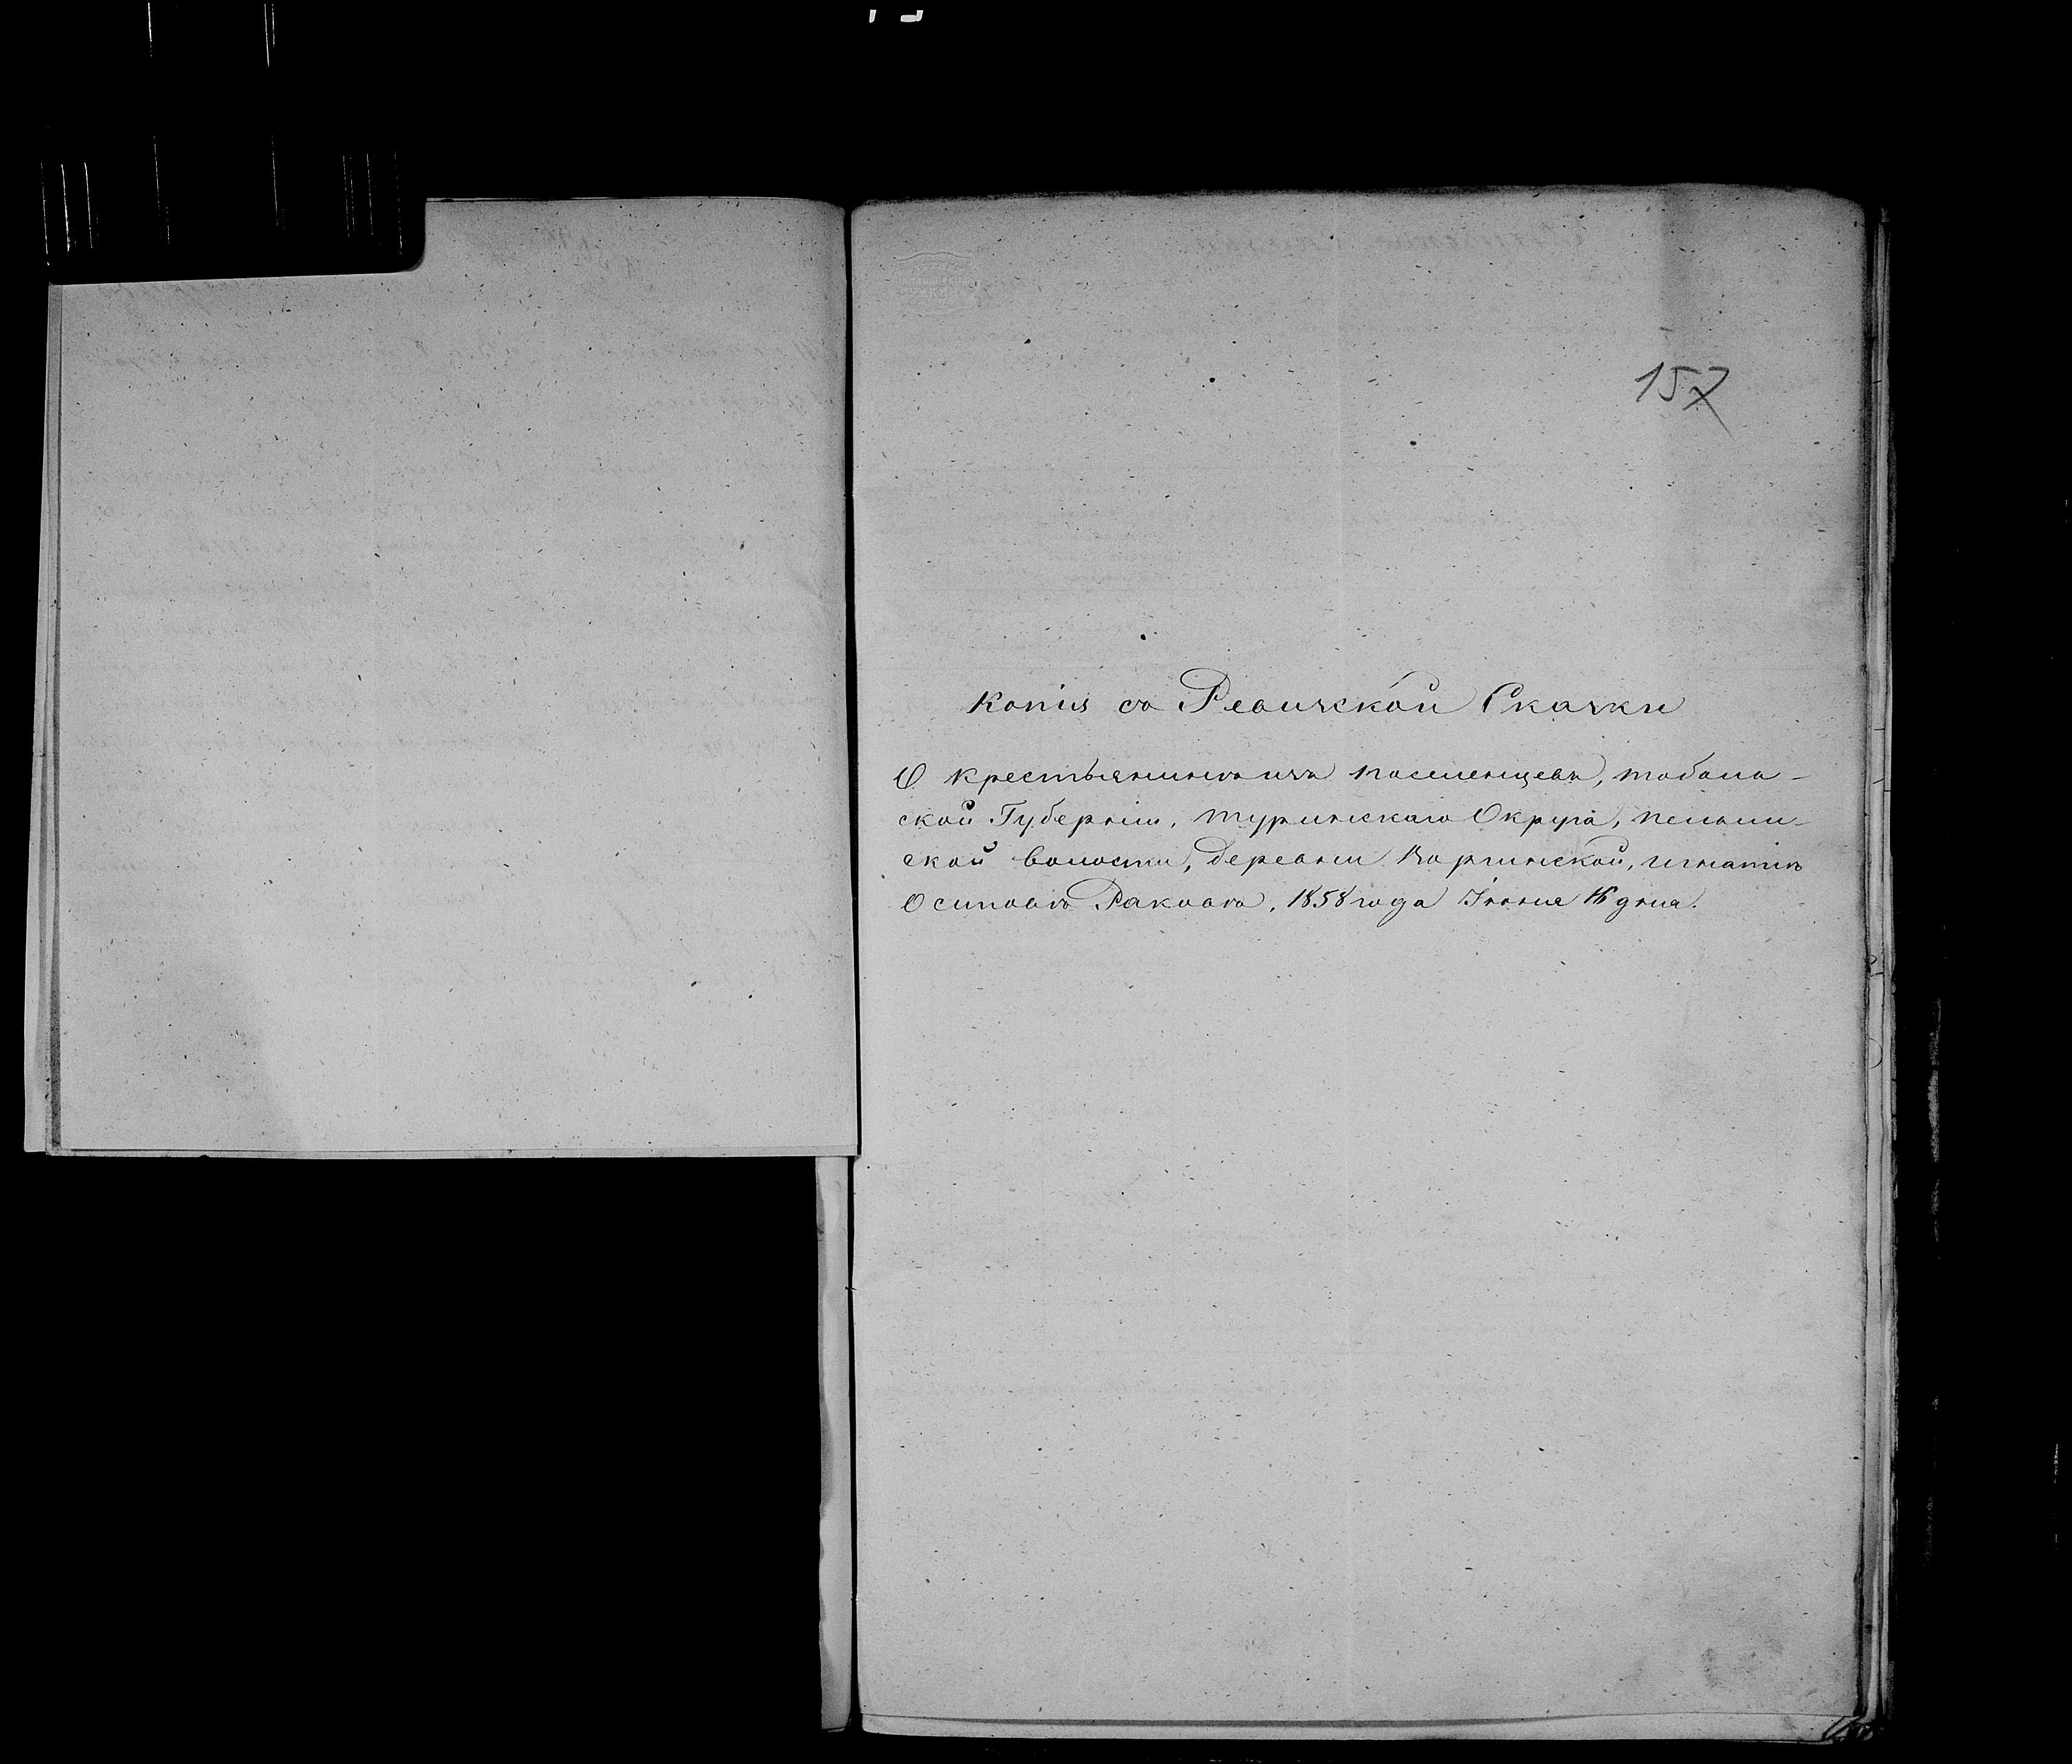 157
Копія съ Ревизской Сказки
О крестьянинѣ изъ поселенцевъ, тоболь-
ской Губерніи, туринскаго Округа, пелым-
ской волости, деревни Воргинской, игнатіѣ
Осиповѣ Раковѣ, 1858 года Іюня 16 дня.